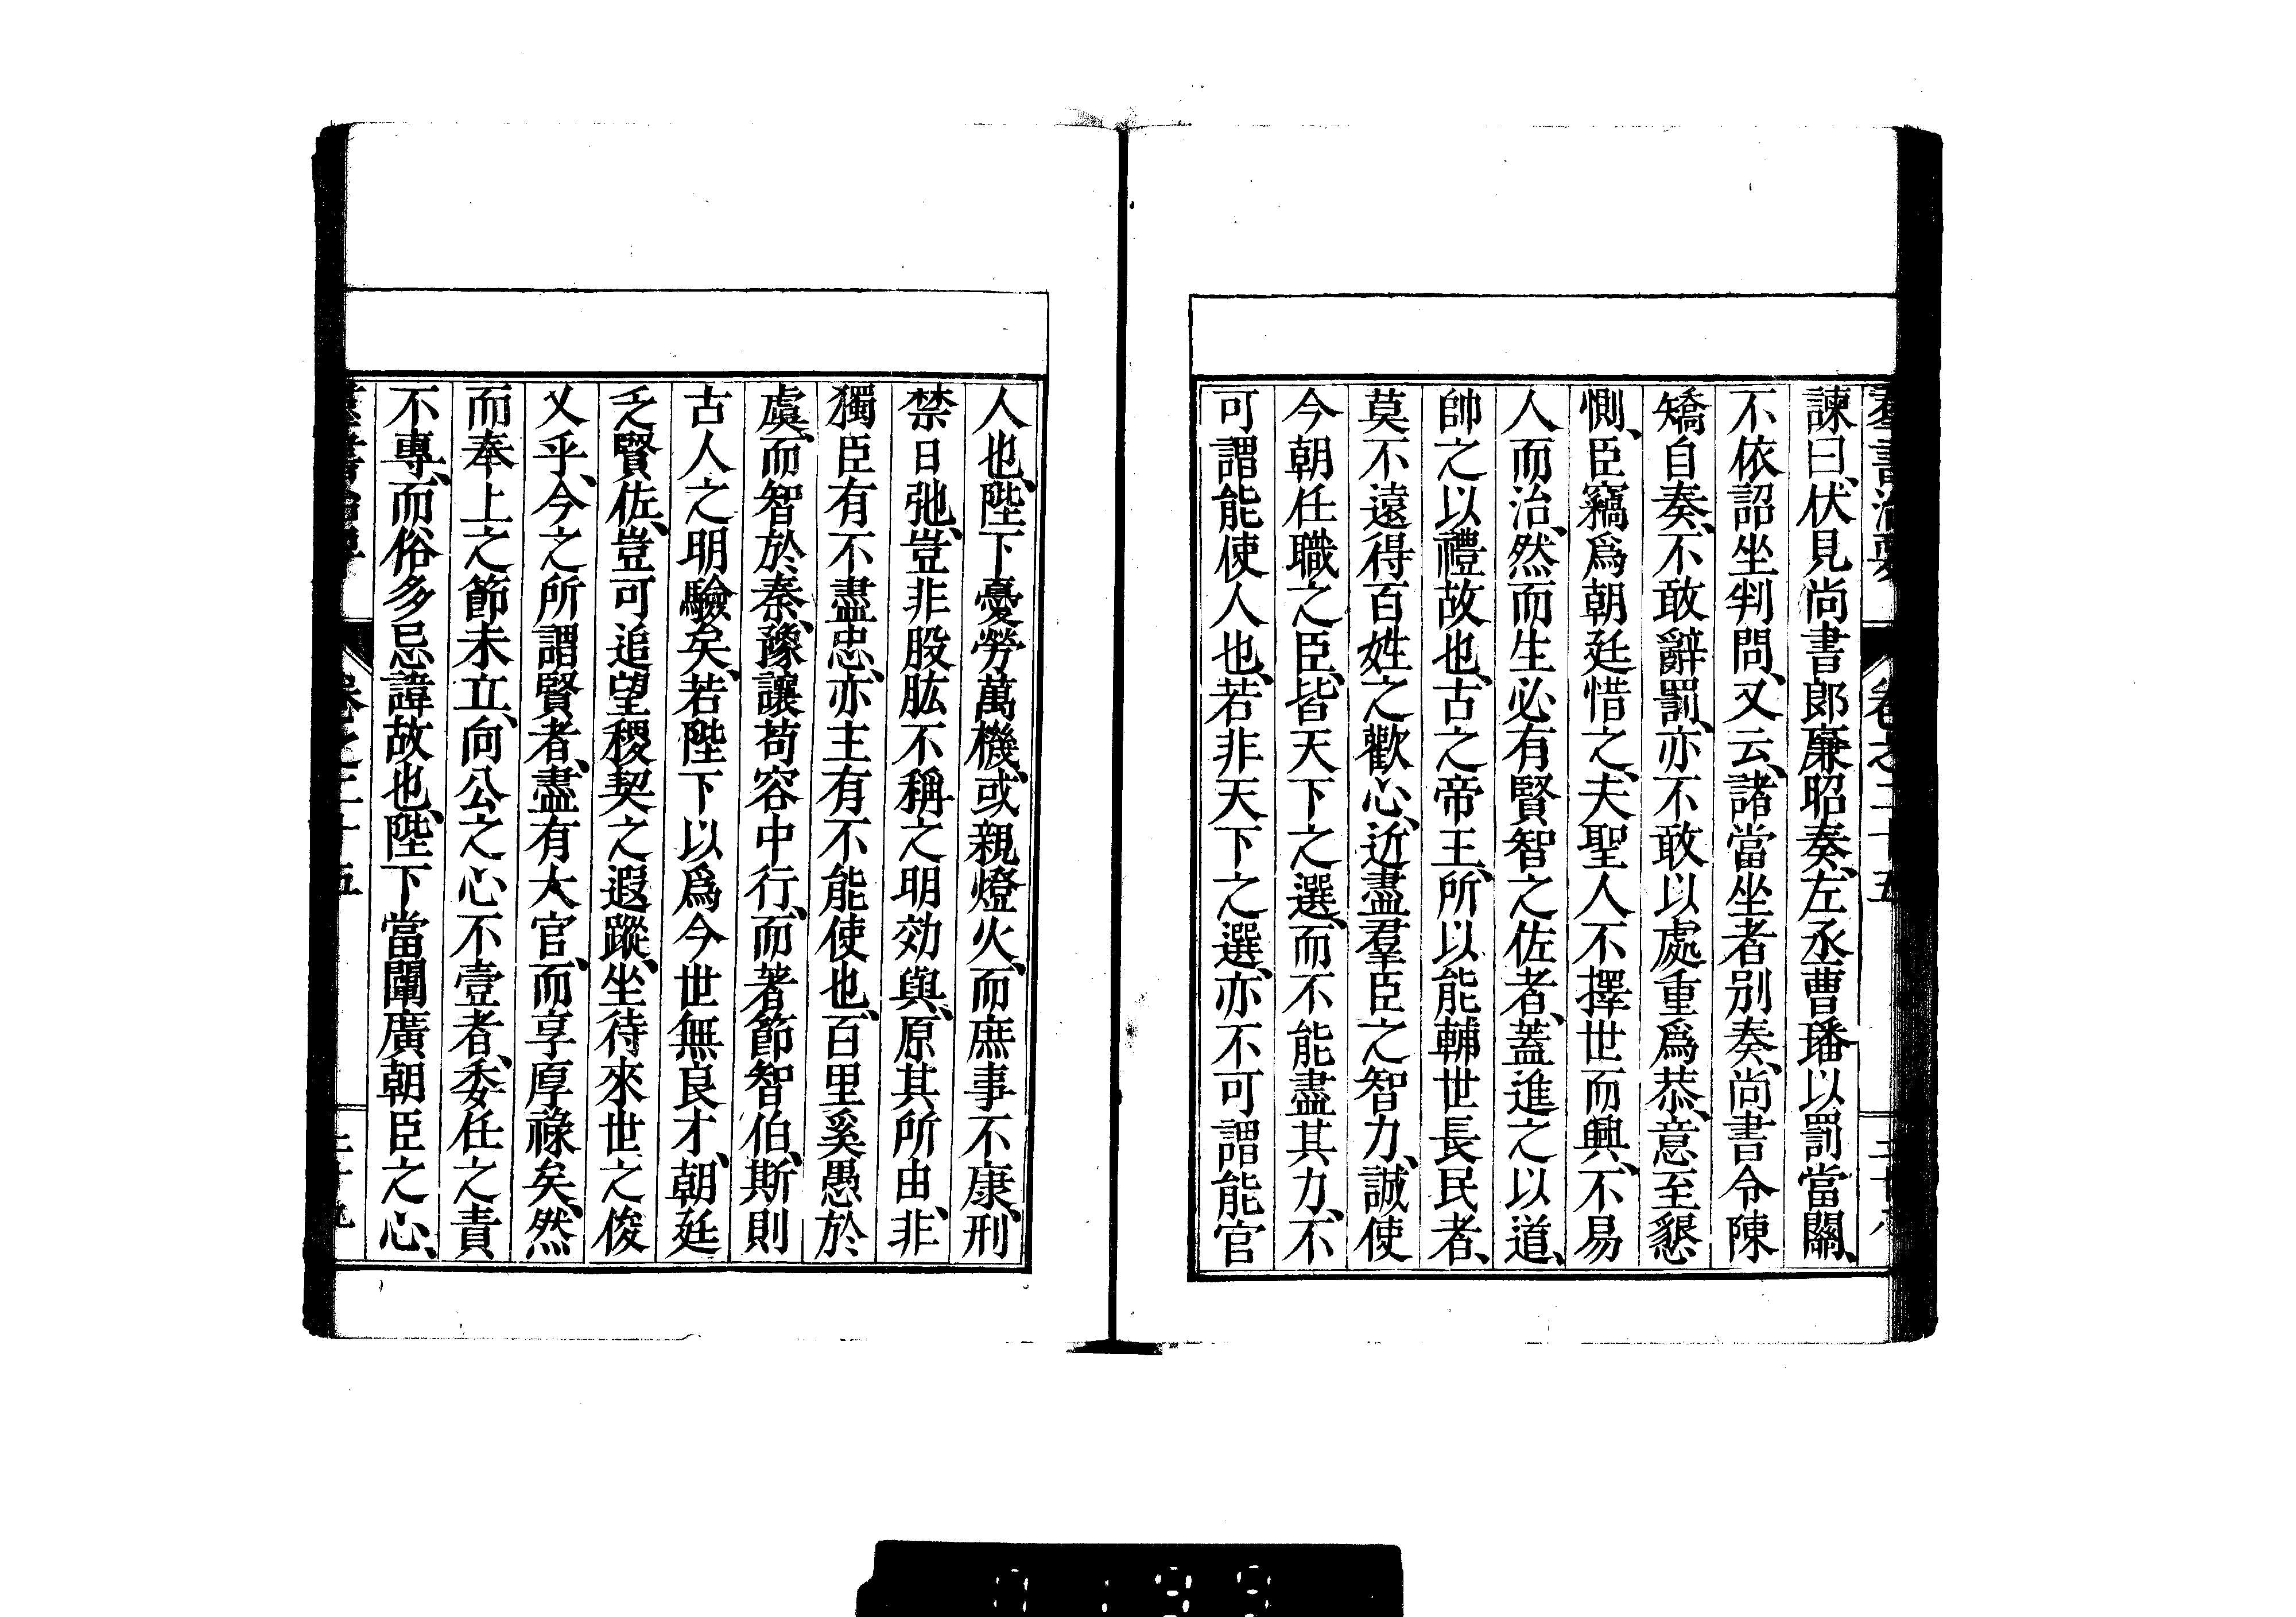 羣書治要 卷之二十五 三十八
諫曰、伏見尚書郎廉昭奏、左丞曹璠以罰當關、
不依詔坐判問、又云、諸當坐者別奏、尚書令陳
矯自奏、不敢辭罰、亦不敢以處重爲恭、意至懇
惻、臣竊爲朝廷惜之、夫聖人不擇世而興、不易
人而治、然而生必有賢智之佐者、蓋進之以道、
帥之以禮故也、古之帝王、所以能輔世長民者、
莫不遠得百姓之歡心、近盡羣臣之智力、誠使
今朝任職之臣、皆天下之選、而不能盡其力、不
可謂能使人也、若非天下之選、亦不可謂能官
人也、陛下憂勞萬機、或親燈火、而庶事不康、刑
禁日弛、豈非股肱不稱之明効與、原其所由、非
獨臣有不盡忠、亦主有不能使也、百里奚愚於
虞、而智於秦、豫讓苟容中行、而著節智伯、斯則
古人之明驗矣、若陛下以爲今世無良才、朝廷
乏賢佐、豈可追望稷契之遐蹤、坐待來世之俊
乂乎、今之所謂賢者、盡有大官、而享厚祿矣、然
而奉上之節未立、向公之心不壹者、委任之責
不專、而俗多忌諱故也、陛下當闡廣朝臣之心、
羣書治要 卷之二十五 三十九